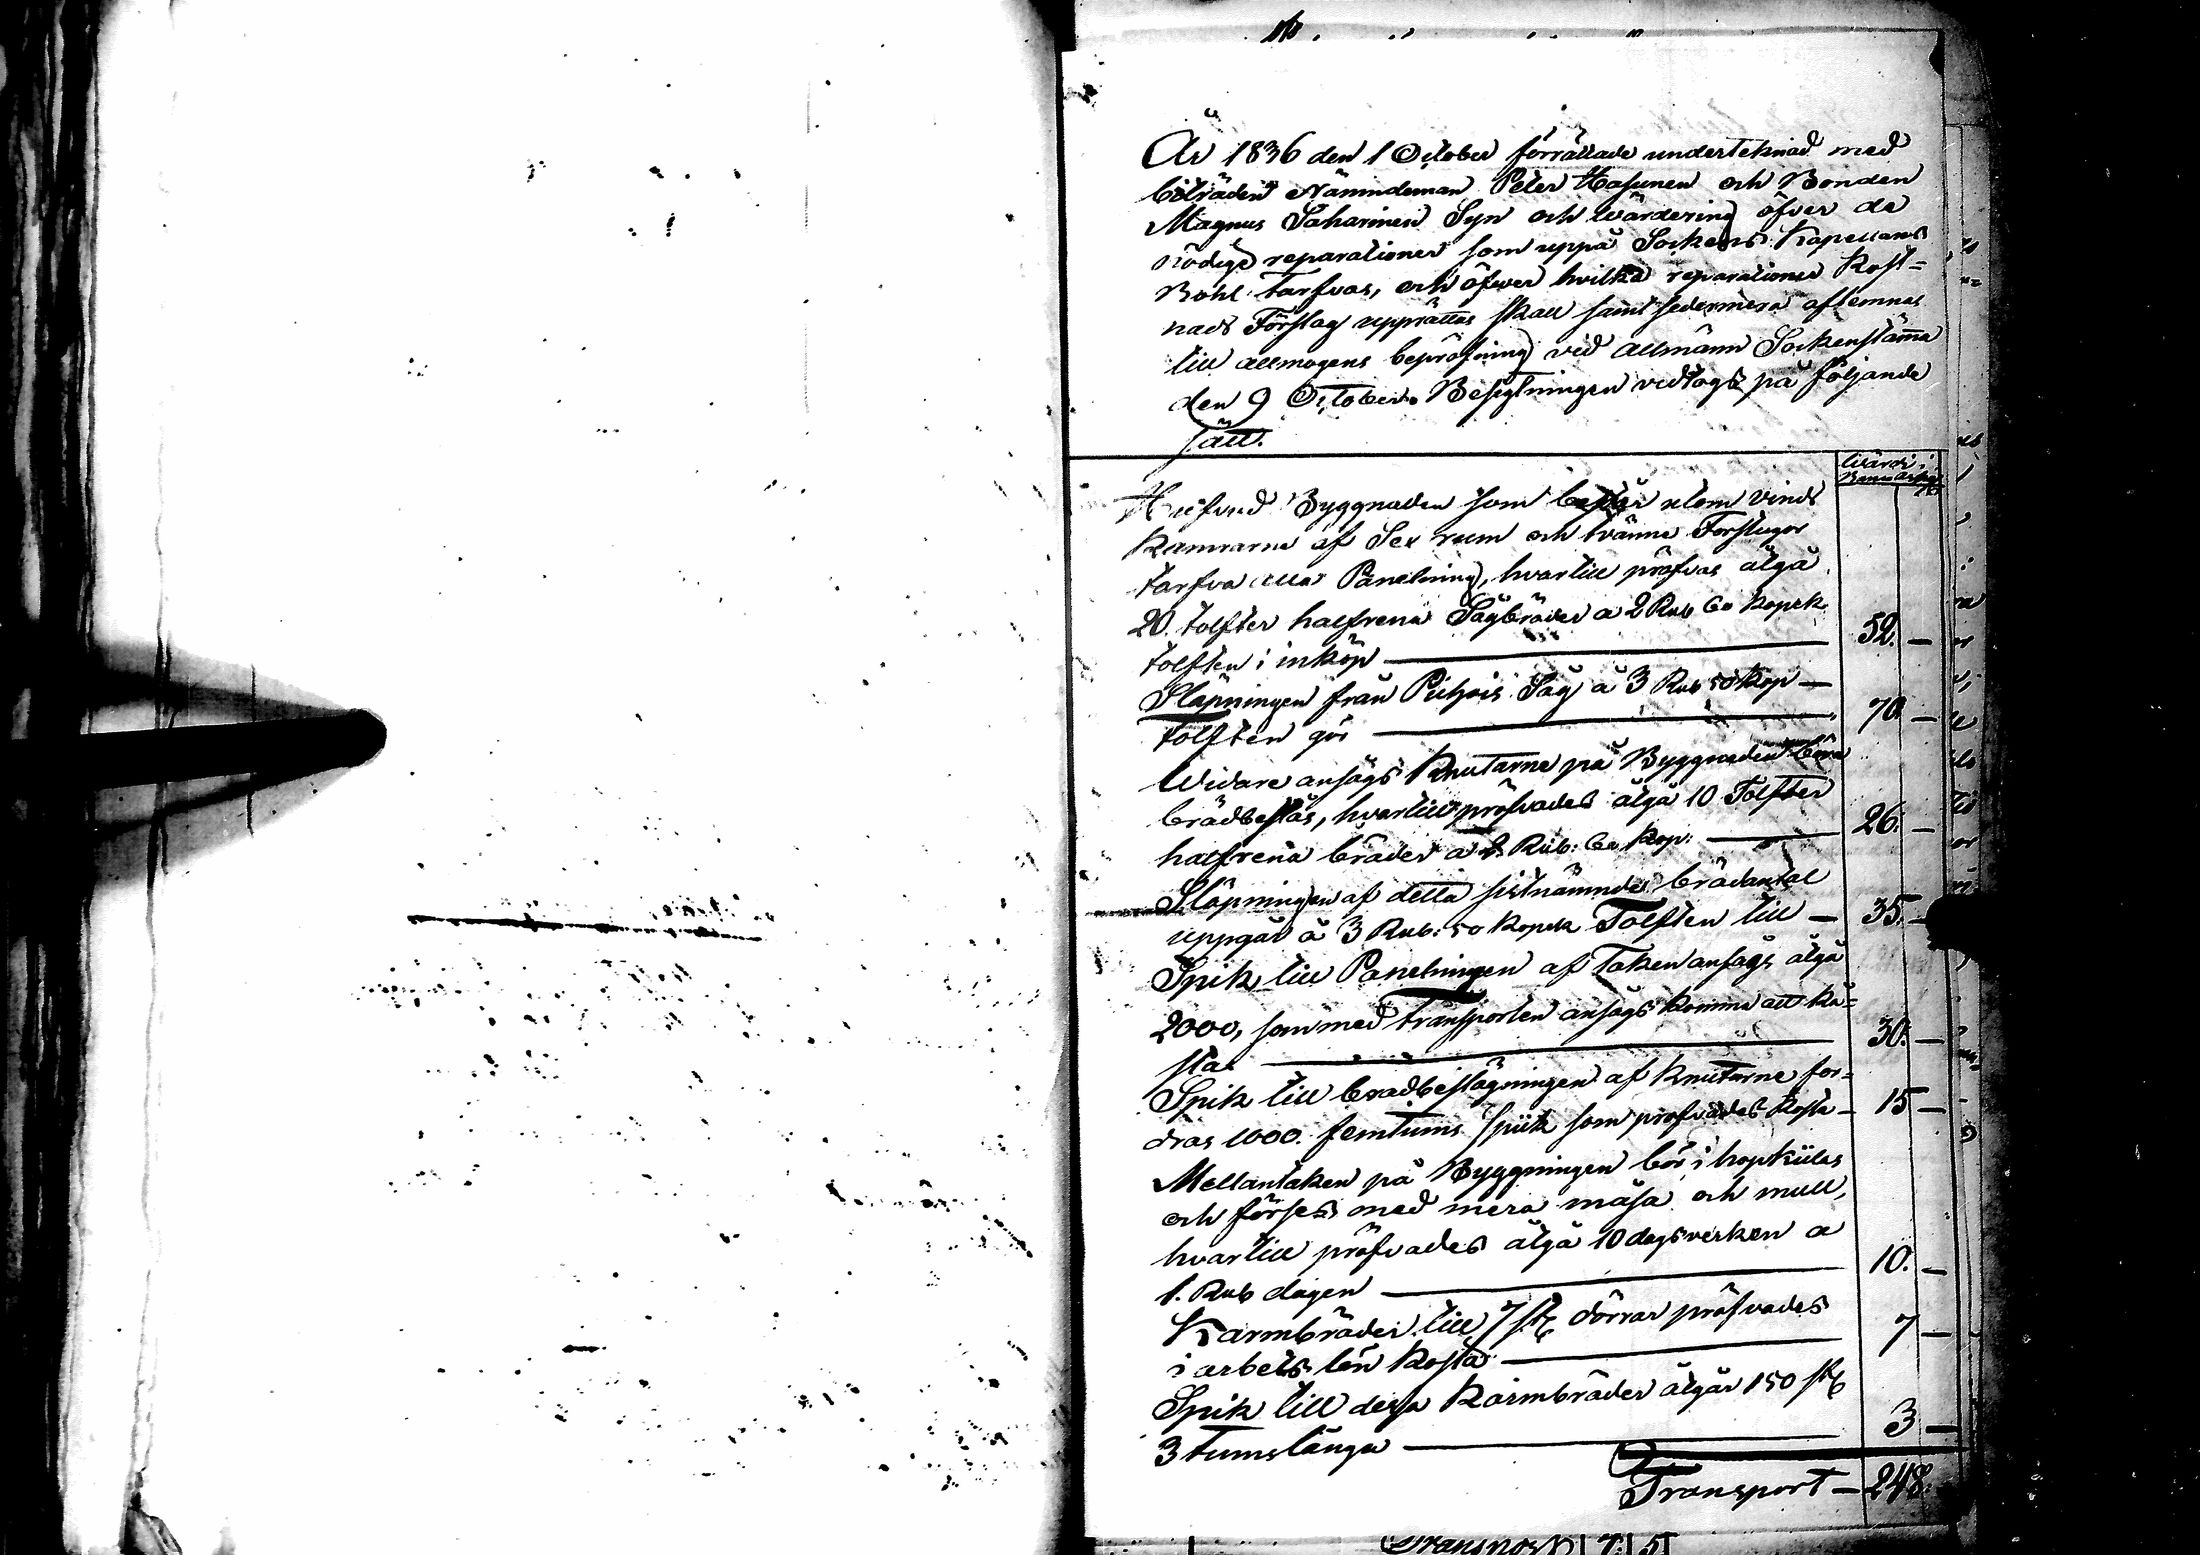 År 1836 den 1 October förrättade undertecknad med
biträden Nämndeman Peter Hasunen och Bonden
Magnus Saharinen Syn och Wärdering öfver de
nödige reparationer som uppå Sockens Kapellans
Bohl tarfvas, och öfver hvilka reparationer Kost=
nads Förslag upprättas skall samt sedermera aflemnas
till allmogens bepröfning vid allmänn Sockenstämma
den 9 October. Besigtningen vedtogs på följande
sätt.
Wärde i
Banco Ass
Hufvud Byggnaden som består utom vinds
Kamrarne af Sex rum och tvänne Förstugor
tarfva Panelning, hvartill pröfvas åtgå
20. tolfter halfrena Sågbräder a 2 Rub 60 Kopek
tolften i inköp — 52. —
Släpningen från Såg á 3 Rub 50 Kop —
Tolften gör — 70 —
Widare ansågs Knutarne på Byggnaden böra
brädbeslås, hvartill pröfvades åtgå 10 Tolfter
halfrena bräder a 2. Rub: 60 Kop: — 26. —
Släpningen af detta sistnämnde brädantal
uppgår á 3 Rub: 50 Kopek Tolften till — 35. —
Spik till Panelningen af Taken ansågs åtgå
2000, som med transporten ansågs komma att ko=
sta — 30. —
Spik till brädbeslagningen af Knutarne for=
dras 1000. femtums spik som pröfvades Kosta — 15 —
Mellantaken på Byggningen bör i hopkiilas
och förses med mera måsa och mull,
hvartill pröfvades åtgå 10 dagsverken a
1. Rub dagen — 10. —
Karmbräder till 7 st dörrar pröfvades
i arbets lön Kosta — 7 —
Spik till dessa Karmbräder åtgår 150 st
3 tums långa — 3 —
Transport — 248.